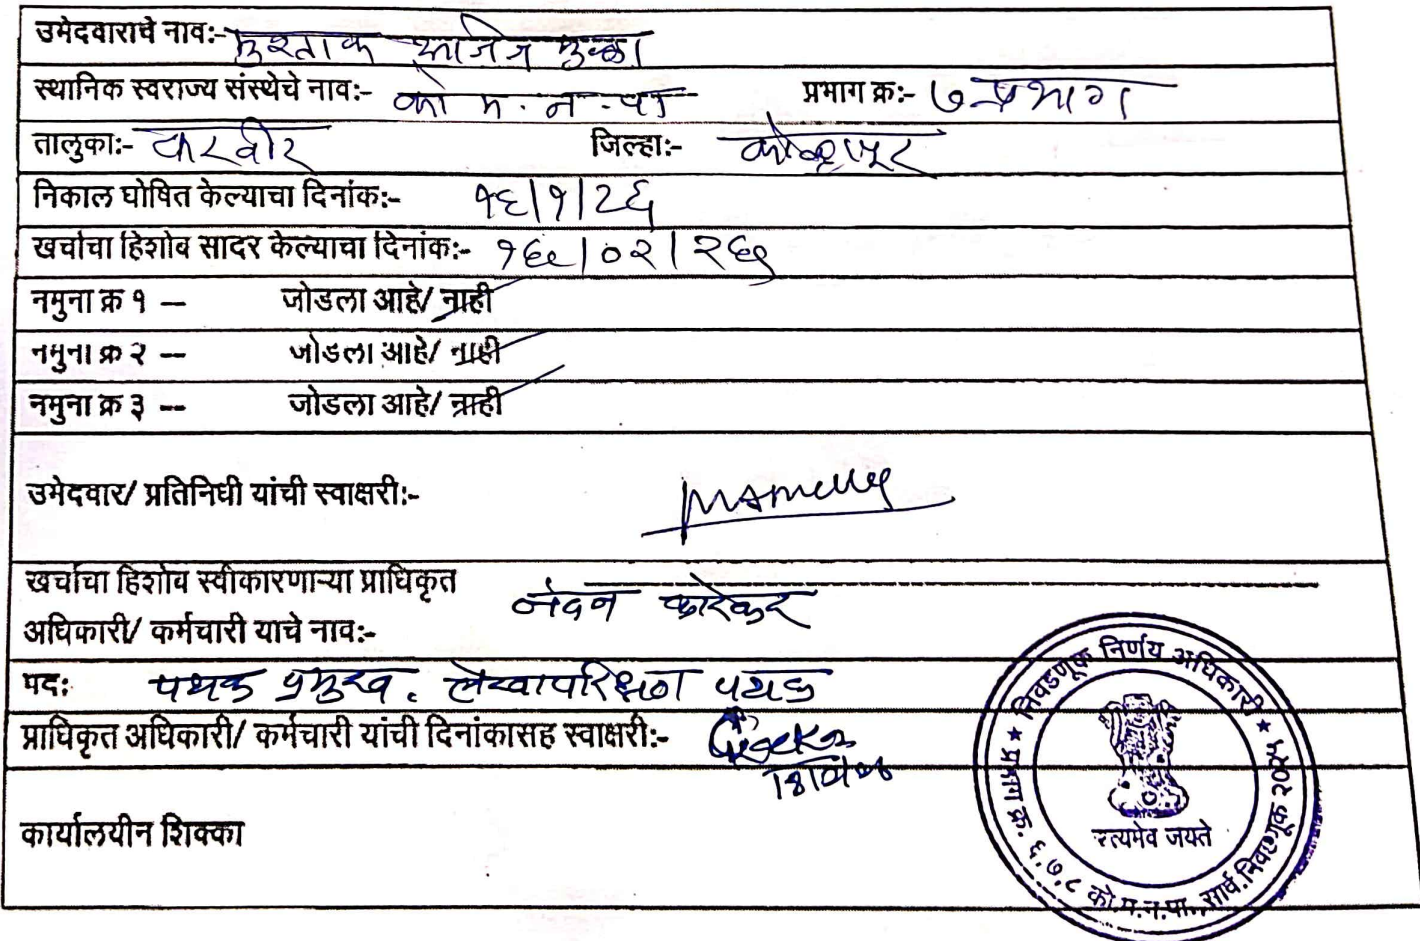 उमेदवाराचे नाव:- मुश्ताक अजिज मुल्ला
स्थानिक स्वराज्य संस्थेचे नाव:- को म. न. पा प्रभाग क्र:- ७ प्रभाग
तालुका:- करवीर जिल्हा:- कोल्हापूर
निकाल घोषित केल्याचा दिनांक:- १६/१/२६
खर्चाचा हिशोब सादर केल्याचा दिनांक:- १६/०२/२६
नमुना क्र १ -- जोडला आहे/ नाही
नमुना क्र २ -- जोडला आहे/ नाही
नमुना क्र ३ -- जोडला आहे/ नाही
उमेदवार/ प्रतिनिधी यांची स्वाक्षरी:-
खर्चाचा हिशोब स्वीकारणाऱ्या प्राधिकृत
अधिकारी/ कर्मचारी याचे नाव:- नंदन कारेकर
पद: पथक प्रमुख. लेखापरिक्षण पथक
प्राधिकृत अधिकारी/ कर्मचारी यांची दिनांकासह स्वाक्षरी:-
कार्यालयीन शिक्का
★ निवडणूक निर्णय अधिकारी ★
प्रभाग क्र. ६,७,८ को.म.न.पा. सार्व.निवडणूक २०२५
सत्यमेव जयते